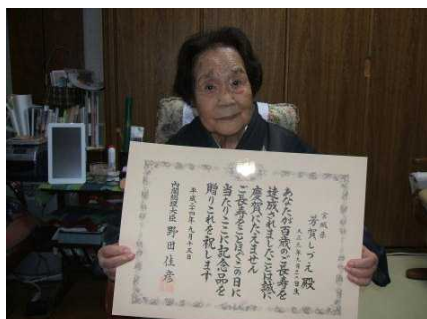 宮城県
芳賀しづえ殿
あなたが百歳のご長寿を
達成されましたことは誠に
慶賀にたえません
ご長寿をことほぐこの日に
当たりここに記念品を
贈りこれを祝します
平成二十四年九月十五日
内閣総理大臣 野田佳彦